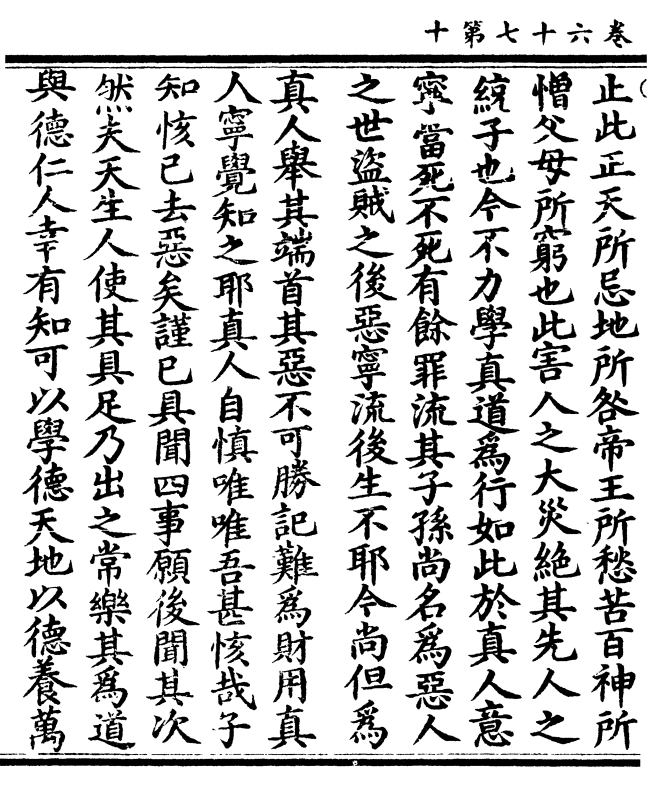 卷六十七第十
止此正天所忌地所咎帝王所愁苦百神所
憎父母所窮也此害人之大災絶其先人之
統子也今不力學真道為行如此於真人意
寧當死不死有餘罪流其子孫尚名為惡人
之世盜賊之後惡寧流後生不耶今尚但為
真人舉其端首其惡不可勝記難為財用真
人寧覺知之耶真人自慎唯唯吾甚恢哉子
知恢已去惡矣謹已具聞四事願後聞其次
然夫天生人使其具足乃出之常樂其為道
與德仁人幸有知可以學德天地以德養萬